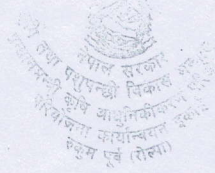 नेपाल सरकार
कृषि तथा पशुपन्छी विकास
प्रधानमन्त्री कृषि आधुनिकीकरण
परियोजना कार्यान्वयन इकाई
रुकुम पूर्व (रोल्पा)